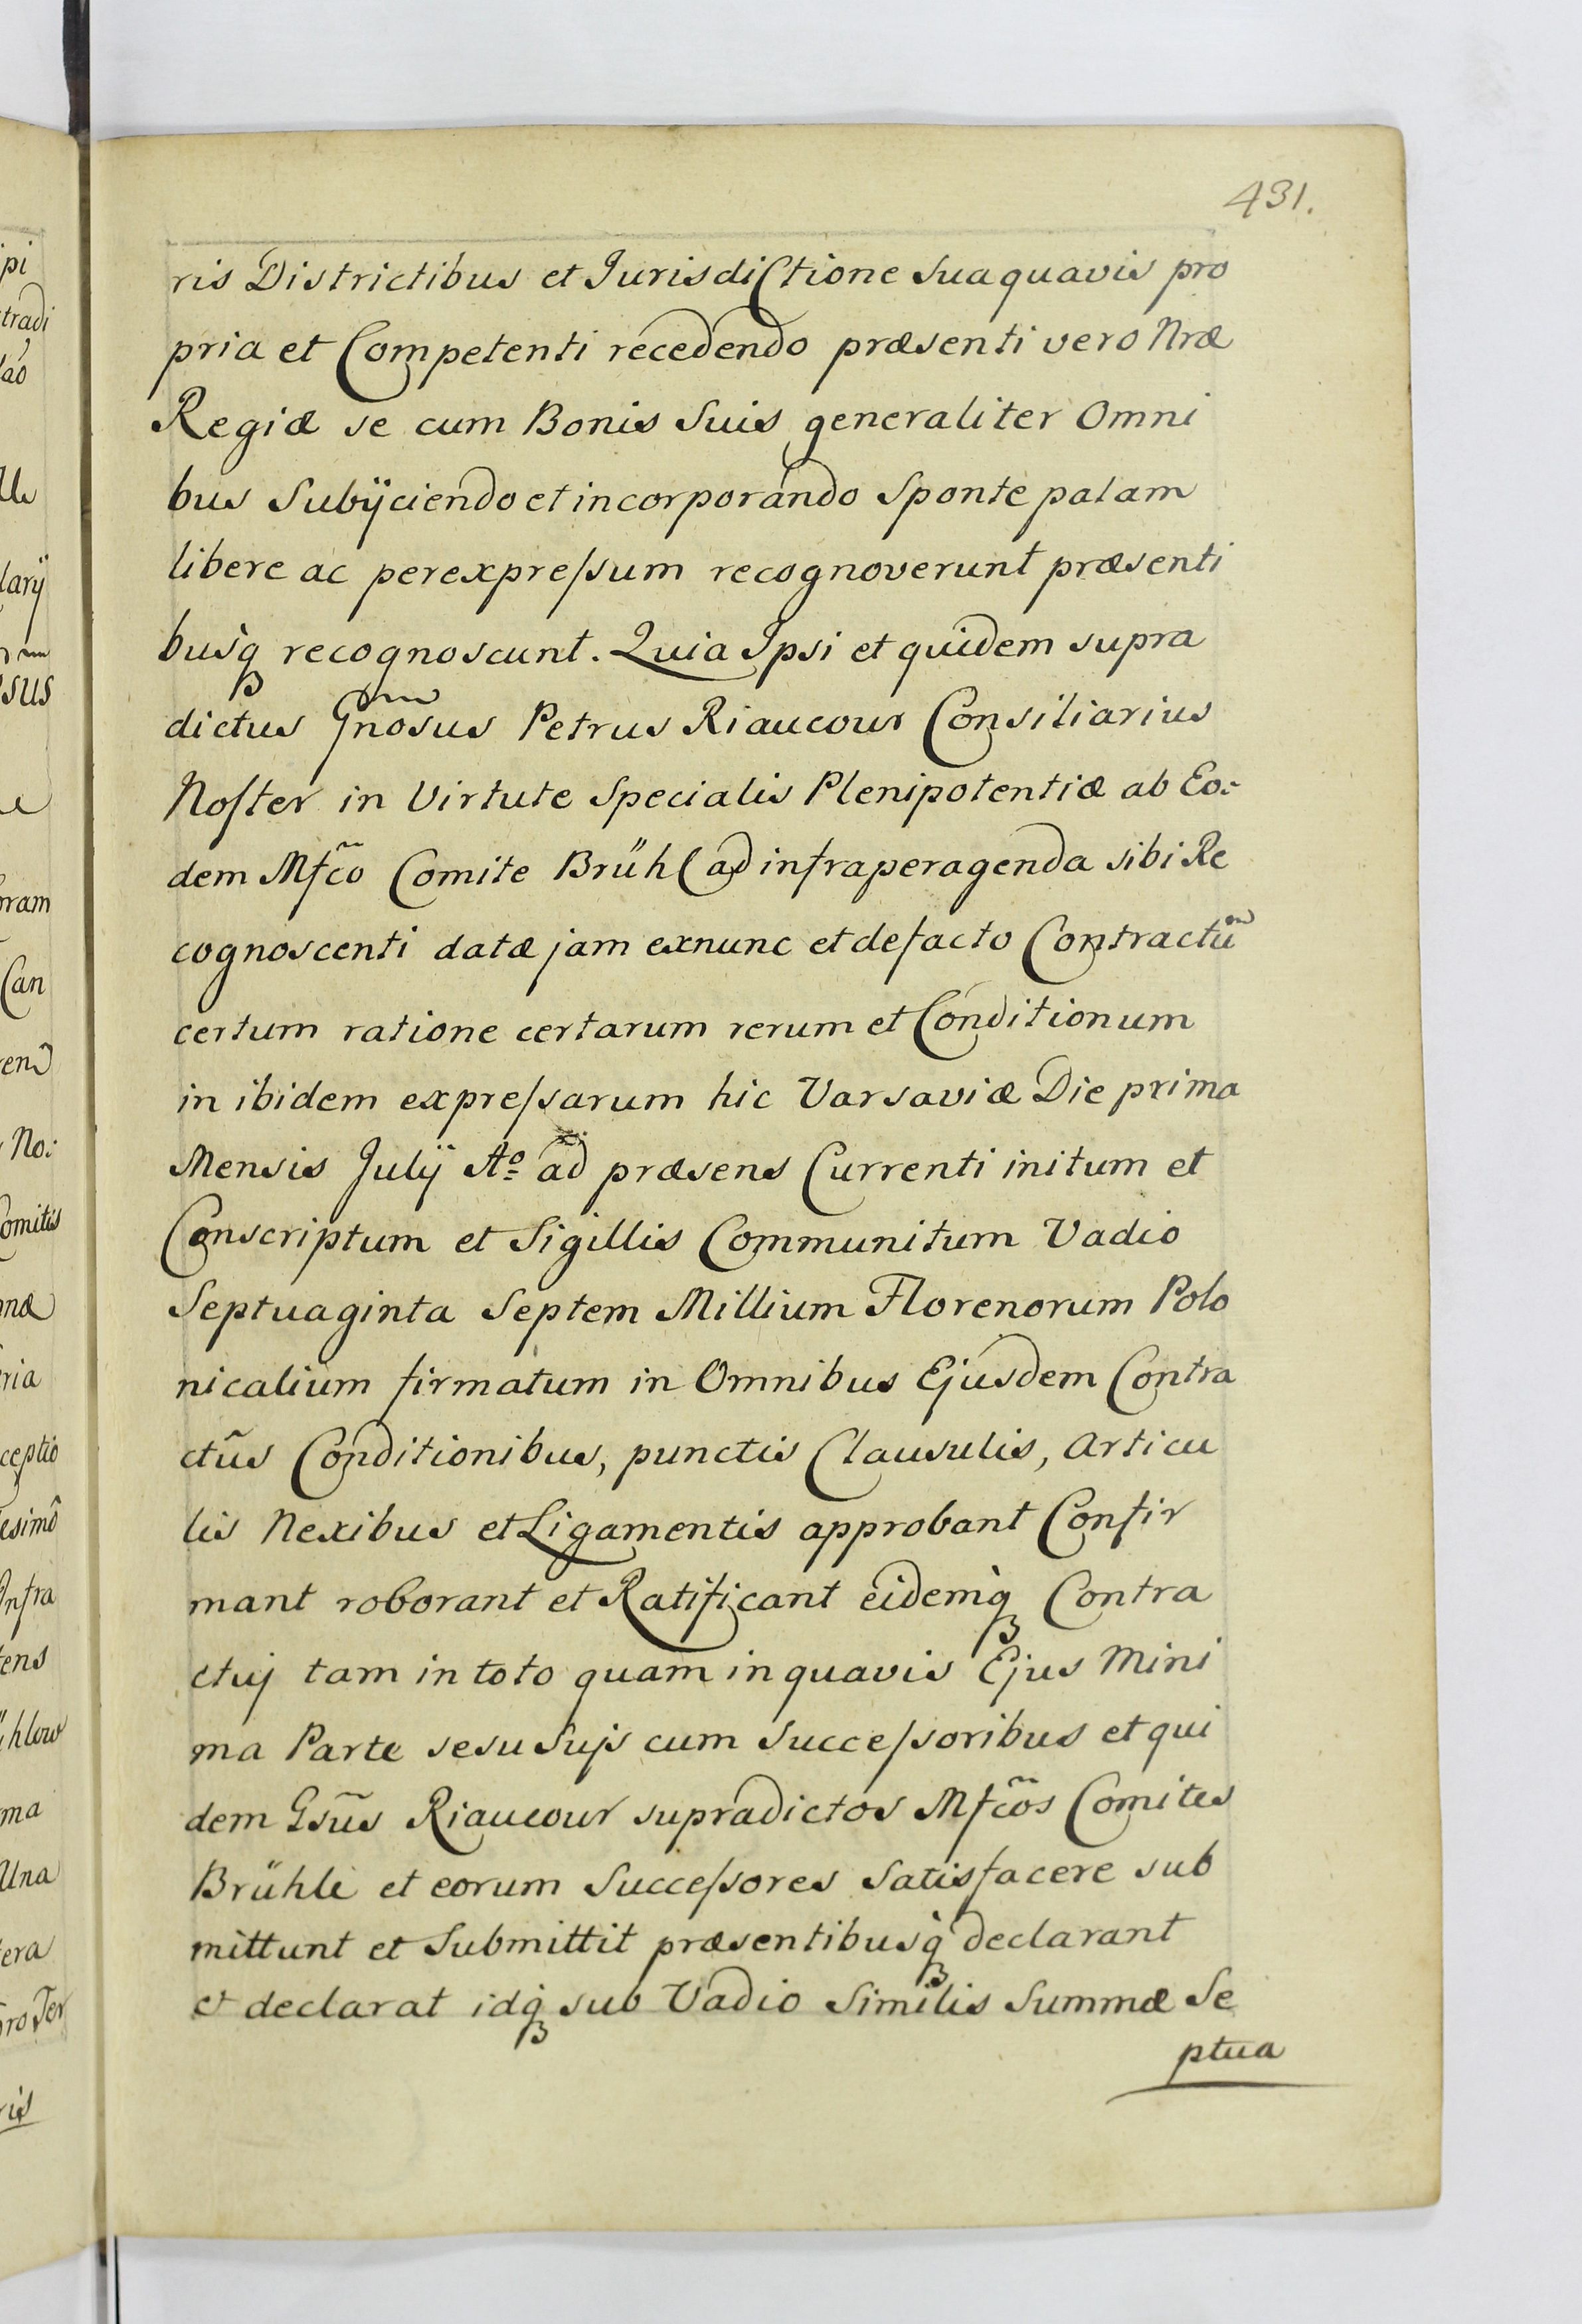 431.
ris Districtibus et Jurisdictione sua quavis pro
pria et Competenti recedendo præsenti vero Nræ
Regiæ se cum Bonis Suis generaliter Omni
bus Subÿciendo et incorporando Sponte palam
libere ac per expreſsum recognoverunt præsenti
busq recognoscunt. Quia Ipsi et quidem supra
dictus Gnosus Petrus Riaucour Consiliarius
Noſter in Virtute Specialis Plenipotentiæ ab Eo:
dem Mfc̃o Comite Brühl ad infra peragenda sibi Re
cognoscenti datæ jam exnunc et defacto Contractũ
certum ratione certarum rerum et Conditionum
in ibidem expreſsarum hic Varsaviæ Die prima
Mensis Julÿ Aº ad præsens Currenti initum et
Conscriptum et Sigillis Communitum Vadio
Septuaginta Septem Millium Florenorum Polo
nicalium firmatum in Omnibus Ejusdem Contra
ctũs Conditionibus, punctis Clausulis, Articu
lis Nexibus et Ligamentis approbant Confir
mant roborant et Ratificant eidemq Contra
ctuj tam in toto quam in quavis Ejus Mini
ma Parte sesu Sujs cum Succeſsoribus et qui
dem Gsũs Riaucour supradictos Mfc̃os Comites
Brühle et eorum Succeſsores Satisfacere sub
mittunt et Submittit præsentibusq declarant
et declarat idq sub Vadio Similis Summæ Se
ptua
pi
tradi
lao
lle
larÿ
sus
oram
Can
No:
Comitis
næ
ria
ceptio
esimo
Infra
tens
hlow
ma
Una
tera
pro Ter
ris